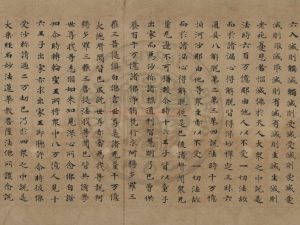 六入滅則觸滅觸滅則受滅受滅則愛滅愛
滅則取滅取滅則有滅有滅則生滅生滅則
老死憂悲苦惱滅佛於天人大眾之中說是
法時六百萬億那由他人以不受一切法故
而於諸漏心得解脫皆得深妙禪定三明六
通具八解脫第二第三第四說法時千萬億
恒河沙那由他等眾生亦以不受一切法故
而於諸漏心得解脫從是已後諸聲聞眾無
量無邊不可稱數爾時十六王子皆以童子
出家而為沙彌諸根通利智慧明了已曾供
養百千萬億諸佛淨修梵行求阿耨多羅三
藐三菩提俱白佛言世尊是諸無量千萬億
大德聲聞皆已成就世尊亦當為我等說阿
耨多羅三藐三菩提法我等聞已皆共修學
世尊我等志願如來知見深心所念佛自證
知爾時轉輪聖王所將眾中八萬億人見十
六王子出家亦求出家王即聽許爾時彼佛
受沙彌請過二萬劫已乃於四眾之中說是
大乘經名妙法蓮華教菩薩法佛所護念說